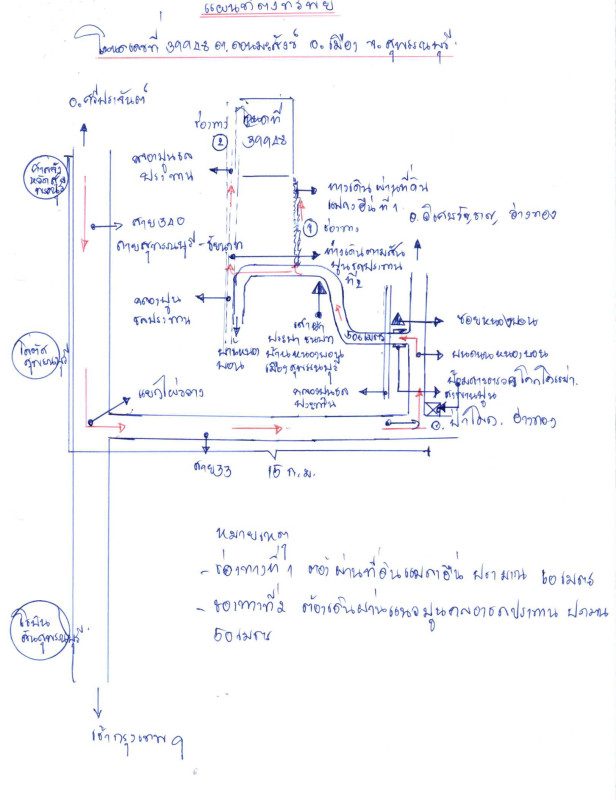 แผนที่ตั้งทรัพย์
โฉนดเลขที่ 39948 ต.ดอนมะสังข์ อ.เมือง จ.สุพรรณบุรี
อ.ศรีประจันต์
ช่องทาง
2
โฉนดที่
39948
คลองปูนชล
ประทาน
ทางเดินผ่านที่ดิน
แปลงอื่นที่ 1
1
ช่องทาง
อ.วิเศษชัยชาญ, อ่างทอง
สาย 340
สายสุพรรณบุรี - ชัยนาท
ทางเดินตามสัน
ปูนชลประทาน
ที่ 2
คลองปูน
ชลประทาน
ประปา
บ้านหนองบอน
เมืองสุพรรณบุรี
50 เมตร
ซอยหนองบอน
ถนนหนองบอน
คลองปูนชล
ประทาน
สะพานปูน
แยกไผ่ขวาง
อ.ป่าโมก. อ่างทอง
สาย 33
15 ก.ม.
หมายเหตุ
- ช่องทางที่ 1 ต้องผ่านที่ดินแปลงอื่น ประมาณ 60 เมตร
- ช่องทางที่ 2 ต้องเดินผ่านแนวปูนคลองชลประทาน ประมาณ
50 เมตร
เข้ากรุงเทพฯ